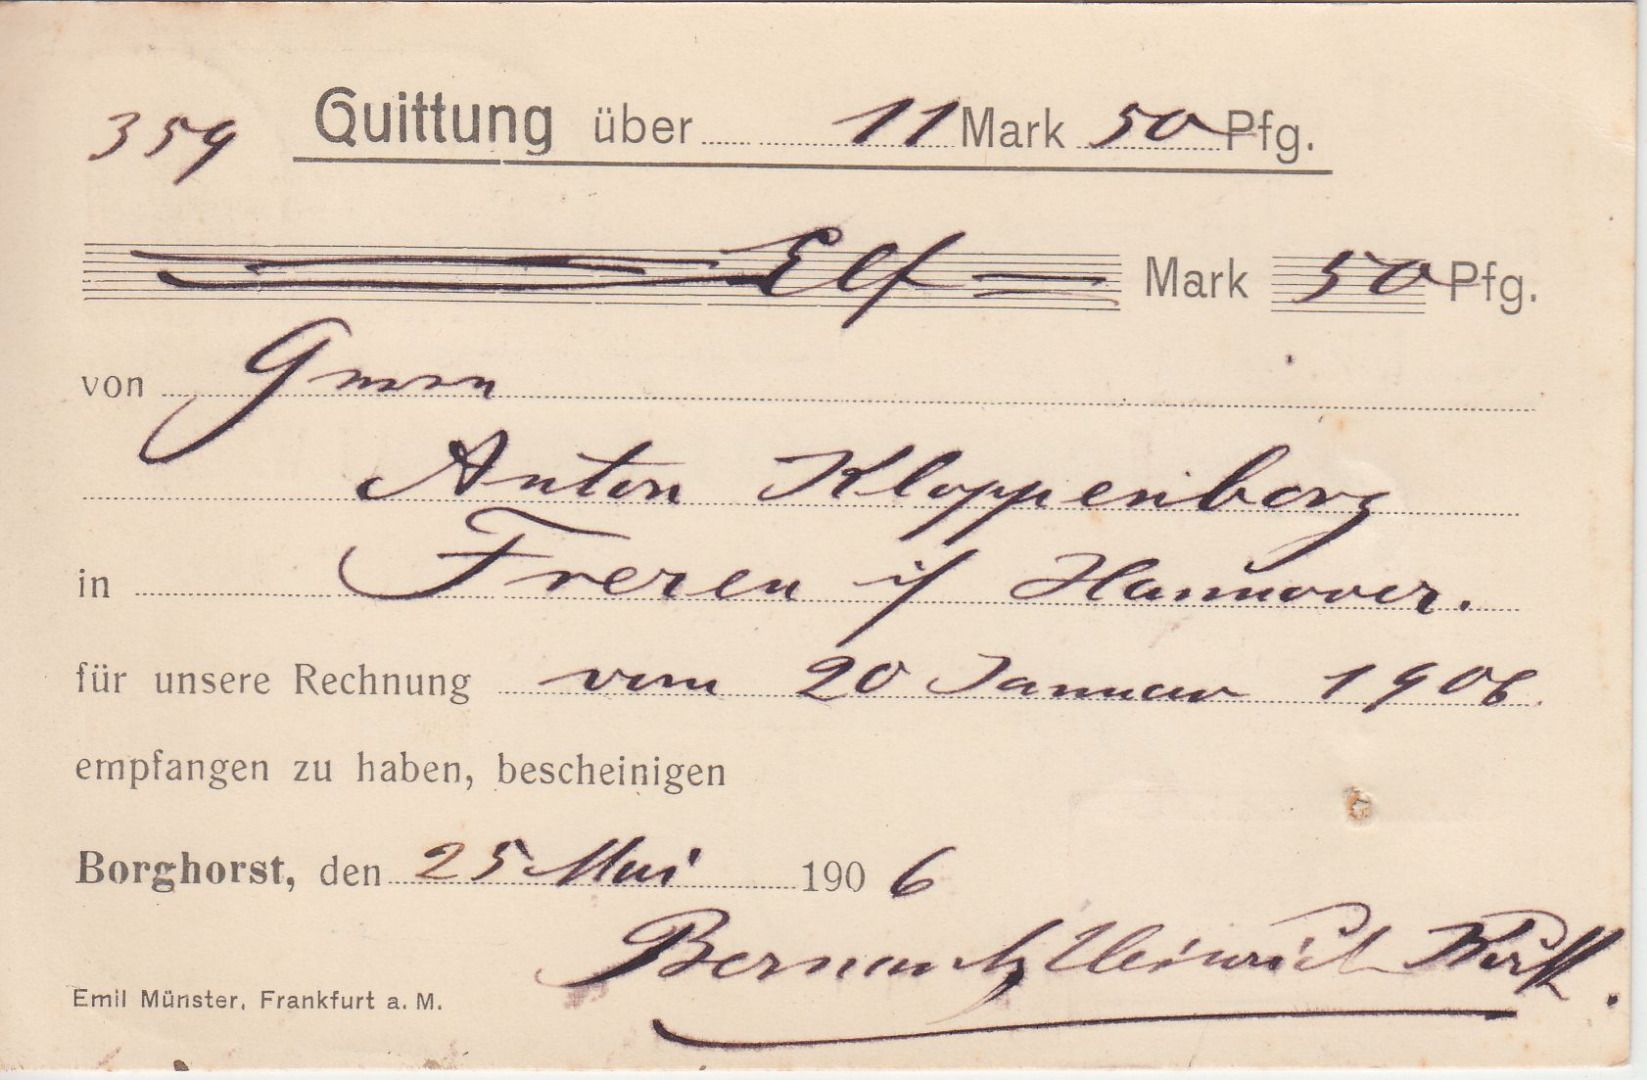 359 Quittung über 11 Mark 50 Pfg.
Elf Mark 50 Pfg.
von
Anton Kloppenborg
in Freren i/ Hannover.
für unsere Rechnung vom 20 Januar 1906
empfangen zu haben, bescheinigen
Borghorst, den 25 Mai 1906
Heinrich
Emil Münster, Frankfurt a. M.